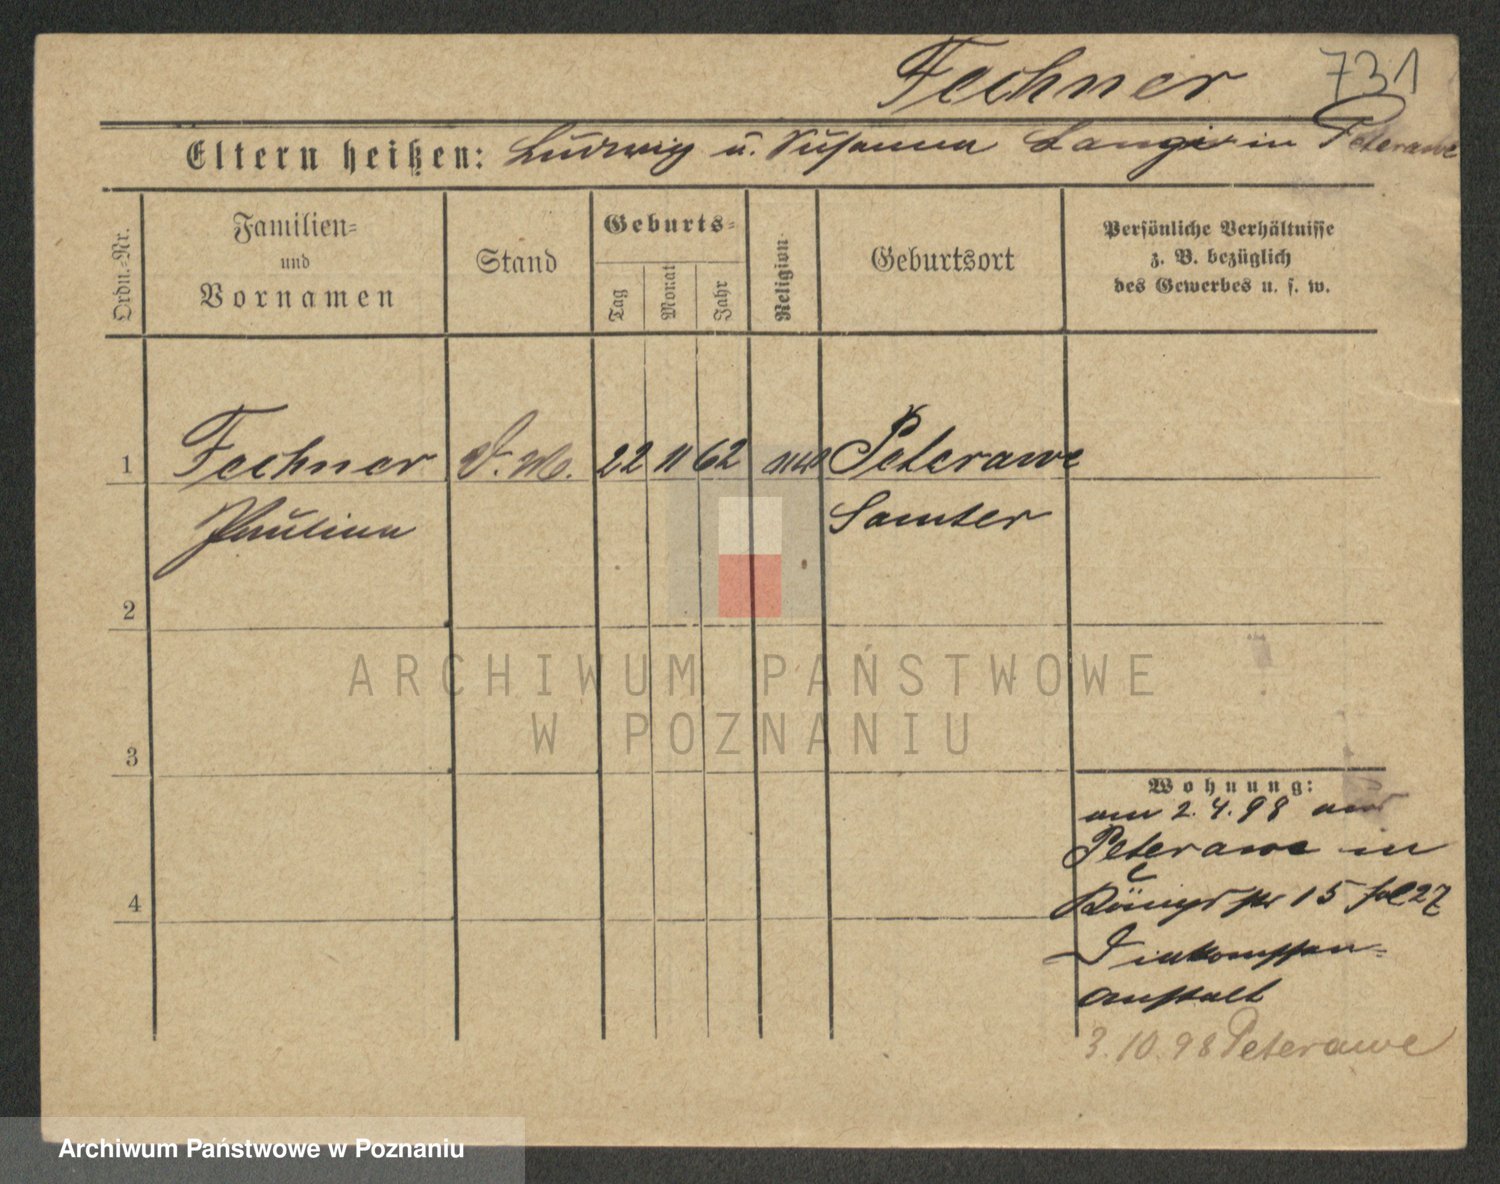 Fechner 731
Eltern heißen: Ludwig u. Susanna Langer in Peterawe
Ordn.-Nr.
Familien-
und
Vornamen
Stand
Geburts-
Tag
Monat
Jahr
Religion
Geburtsort
Persönliche Verhältnisse
z. B. bezüglich
des Gewerbes u. s. w.
1 Fechner D. M. 22 11 62 Peterawe
Paulina Samter
2
3
Wohnung:
am 2.4.98 aus
Peterawe in
4
Königstr 15 fol 27
Diakonissen-
anstalt
3.10.98 Peterawe
ARCHIWUM PAŃSTWOWE
W POZNANIU
Archiwum Państwowe w Poznaniu